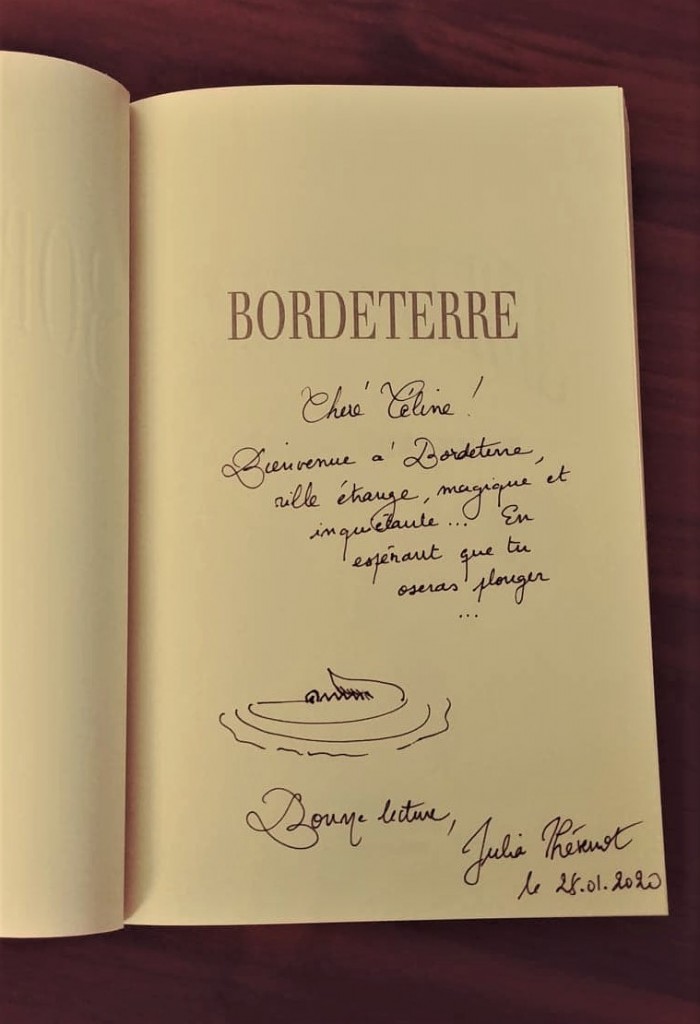 BORDETERRE
Chère Céline !
Bienvenue à Bordeterre,
ville étrange, magique et
inquiétante... En
espérant que tu
oseras plonger
...
Bonne lecture,
Julia Thévenot
le 28.01.2020